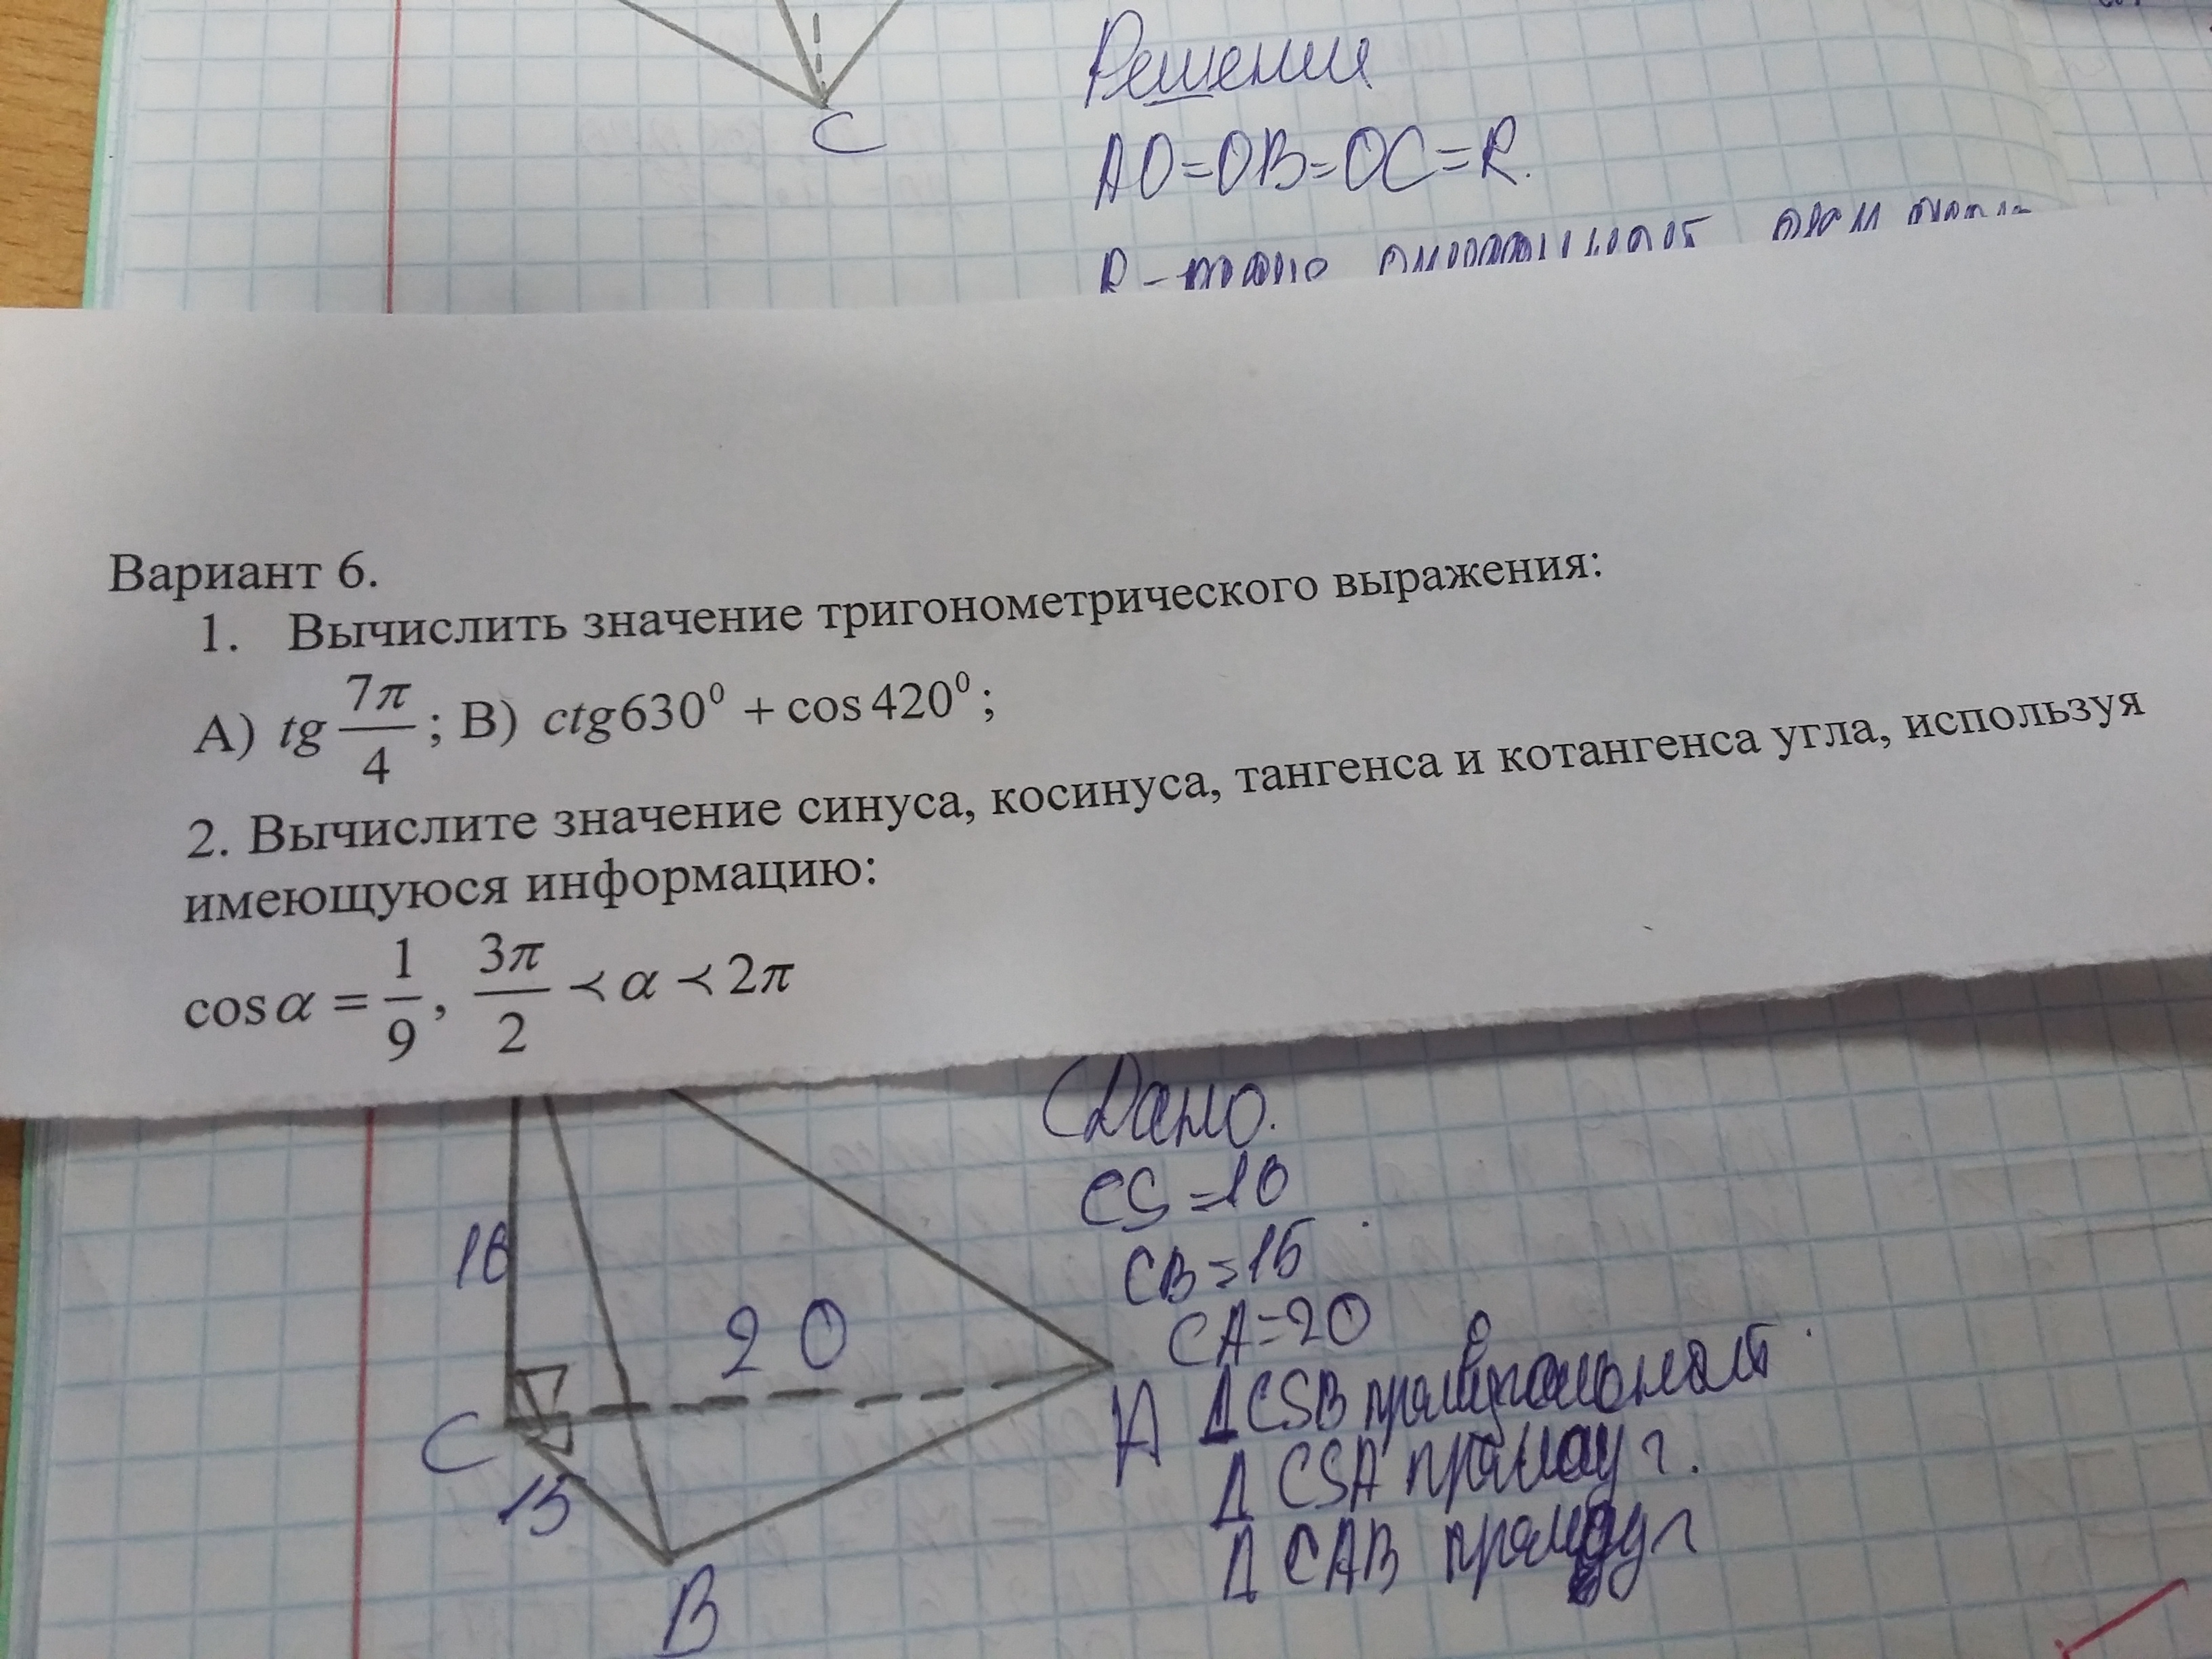 C
Решение
AO=OB=OC=R.
R -
Вариант 6.
1. Вычислить значение тригонометрического выражения:
А) tg 7π/4 ; В) ctg630⁰ + cos420⁰ ;
2. Вычислите значение синуса, косинуса, тангенса и котангенса угла, используя
имеющуюся информацию:
cos α = 1/9 , 3π/2 ≺ α ≺ 2π
Дано.
CS=16
CB=15
CA=20
Δ CSB
Δ CSA прямоуг.
Δ CAB прямоуг
16
20
C
A
15
B